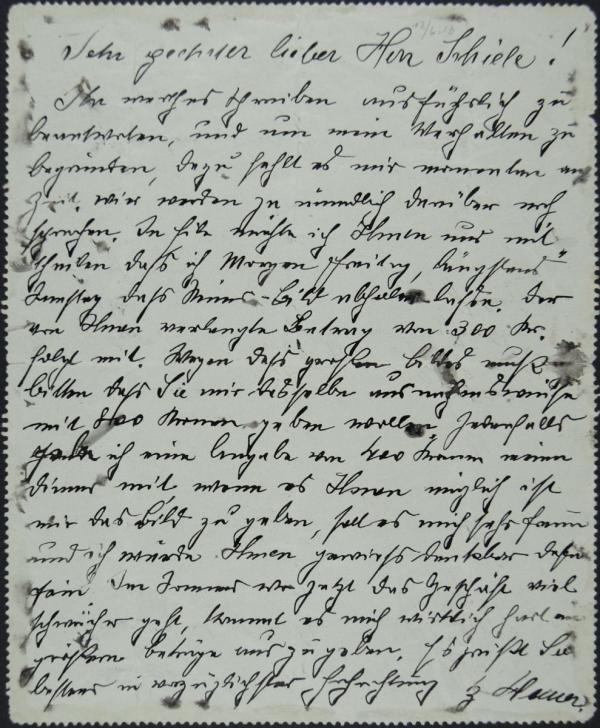 Sehr geehrter lieber Herr Schiele!
Ihr werthes Schreiben ausführlich zu
beantworten, und um mein Verhalten zu
begründen, dazu fehlt es mir momentan an
Zeit, wir werden ja mündlich darüber noch
sprechen. In Eile möchte ich Ihnen nur mit
theilen dass ich Morgen Freitag, längstens
Samstag dass Bild abholen lasse. Der
von Ihnen verlangte Betrag von 300 Kr.
folgt mit. Wegen dass grossen Bildes muß
bitten dass Sie mir dasselbe ausnahmsweise
mit 800 Kronen geben wollen, Jedenfalls
ich eine Angabe von 400 Kronen meinem
Diener mit, wenn es Ihnen möglich ist
mir das Bild zu geben, soll es mich sehr freun
und ich würde Ihnen gewiss dankbar dafür
sein Im Sommer wo jetzt das Geschäft viel
schwächer geht, kommt es mich wirklich hart an
größere Beträge auszugeben. Es grüßt Sie
bestens in vorzüglichster Hochachtung Hauer.